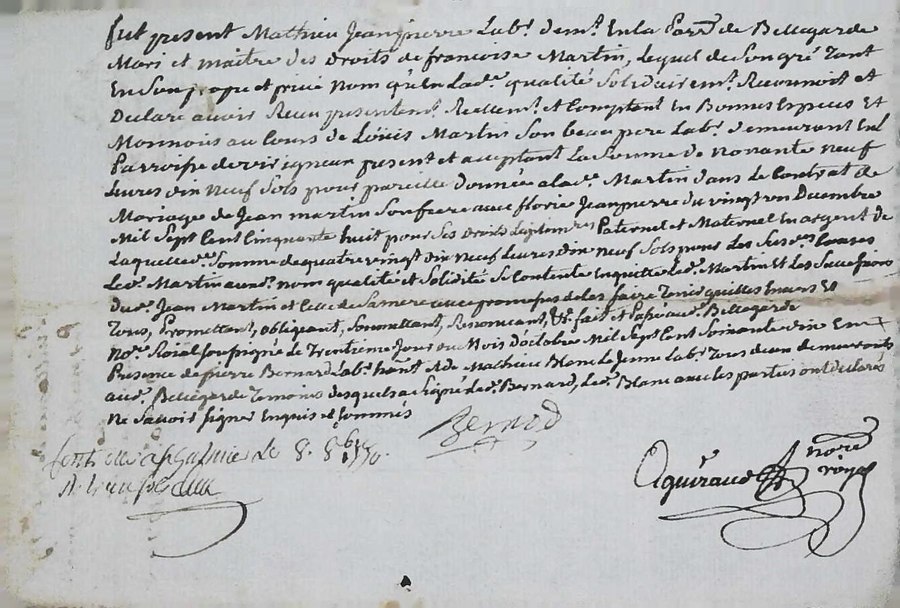 fut present Mathieu Jeanpierre Labr. demt. En la Parse. de Bellegarde
Mari et maitre des Droits de francoise Martin, Lequel de Son gré Tant
En Son propre et privé Nom qu'En Lade. qualité Solidairemt. Reconnoit et
Declare avoir Receu presentemt. Reellemt. et Comptent En Bonnes Especes Et
Monnois au Cours de Loüis Martin Son beau pere Labr. demeurant En L
Parroisse de virigneux present et acceptant La Somme de Nonante Neuf
Livres dix Neuf Sols pour pareille donnée a lade. Martin dans le Contrat de
Mariage de Jean Martin Son frere avec florie Jeanpierre du vingt Decembre
Mil Sept Cent Cinquante huit pour Ses Droits Legitimes Paternel et Maternel En argent de
Laquelle de. Somme de quatre vingt dix Neuf Livres dix Neuf Sols pour Les Susdes. Causes
Led. Martin aud. nom qualité et Solidité Se Contente En quitte Led. Martin Et Les Successeurs
dud. Jean Martin et Celle de Sa mere avec promesses de les faire Tenir quittes Envers Et
Tous, Promettant, obligeant, Soumettant, Renonceant, &c. fait et Passé aud. Bellegarde
Nore. Roial Soussigné Le Trentieme Jour du Mois D'octobre Mil Sept Cent Soixante dix En
Presence de pierre Bernard Labr. et de Mathieu Blanc Le Jeune Labr. Tous deux demeurants
aud. Bellegarde Temoins desquels a Signé Led. Bernard, Led. Blanc avec les parties ont Declarés
Ne Savoir Signer Enquis et Sommés
Bernard
Contrôllé a le 8. 9bre 1770.
Aguiraud Nore. royal